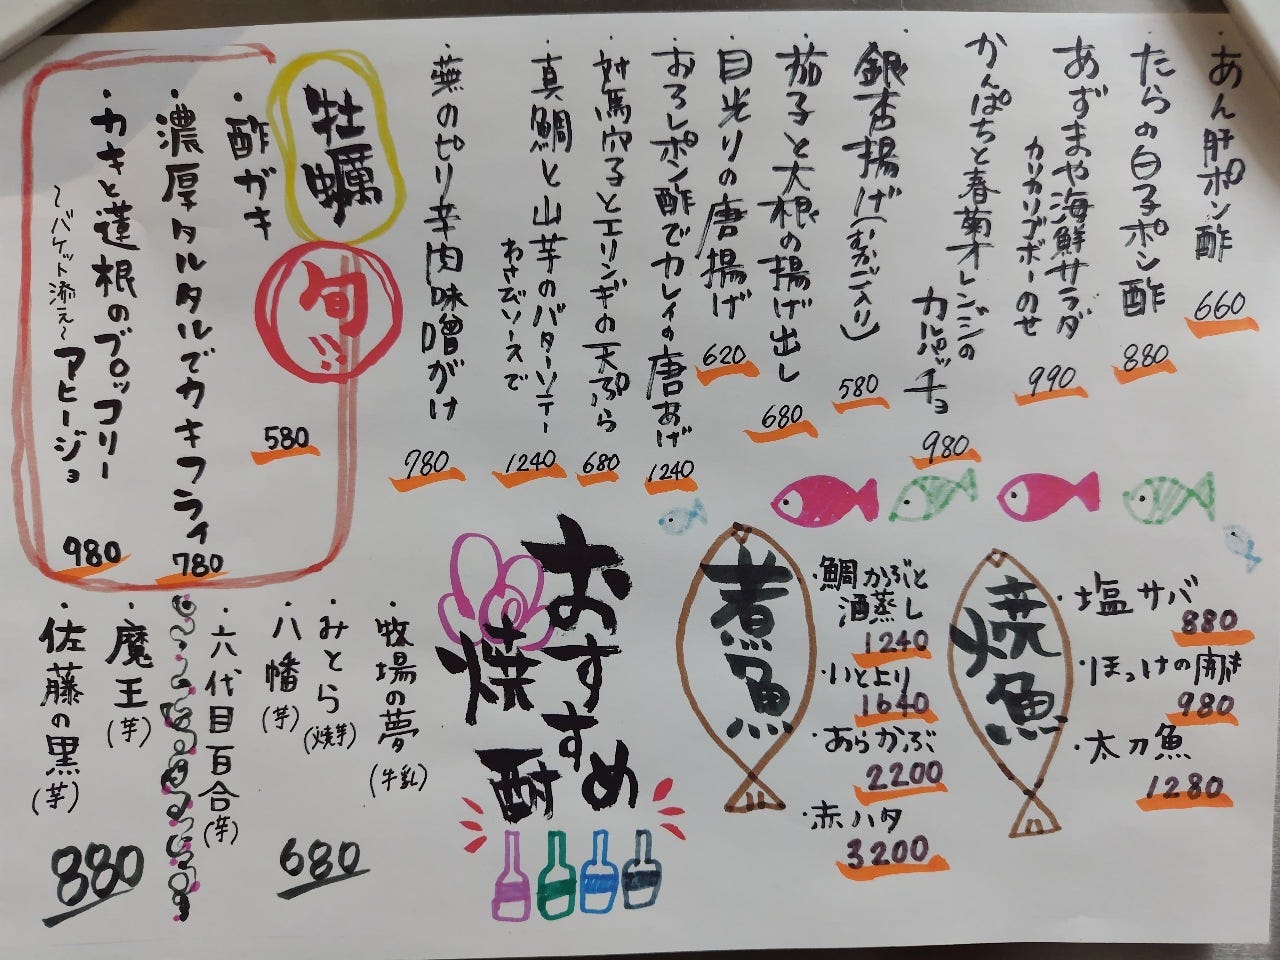 ・あん肝ポン酢
660
・たらの白子ポン酢
880
・あずまや海鮮サラダ
カリカリゴボーのせ
990
・かんぱちと春菊オレンジの
カルパッチョ
980
・銀杏揚げ(むかご入り)
580
・茄子と大根の揚げ出し
680
・目光りの唐揚げ
620
・おろしポン酢でカレイの唐あげ
1240
・対馬穴子とエリンギの天ぷら
680
・真鯛と山芋のバターソテー
わさびソースで
1240
・蕪のピリ辛肉味噌がけ
780
牡蠣
旬
・酢ガキ
580
・濃厚タルタルでカキフライ
780
・カキと蓮根のブロッコリー
〜バケット添え〜アヒージョ
980
焼魚
・塩サバ
880
・ほっけの開き
980
・太刀魚
1280
煮魚
・鯛かぶと
酒蒸し
1240
・いとより
1640
・あらかぶ
2200
・赤ハタ
3200
おすすめ
焼酎
・牧場の夢(牛乳)
・みとら(焼芋)
・八幡(芋)
・六代目百合(芋)
680
・魔王(芋)
・佐藤の黒(芋)
880